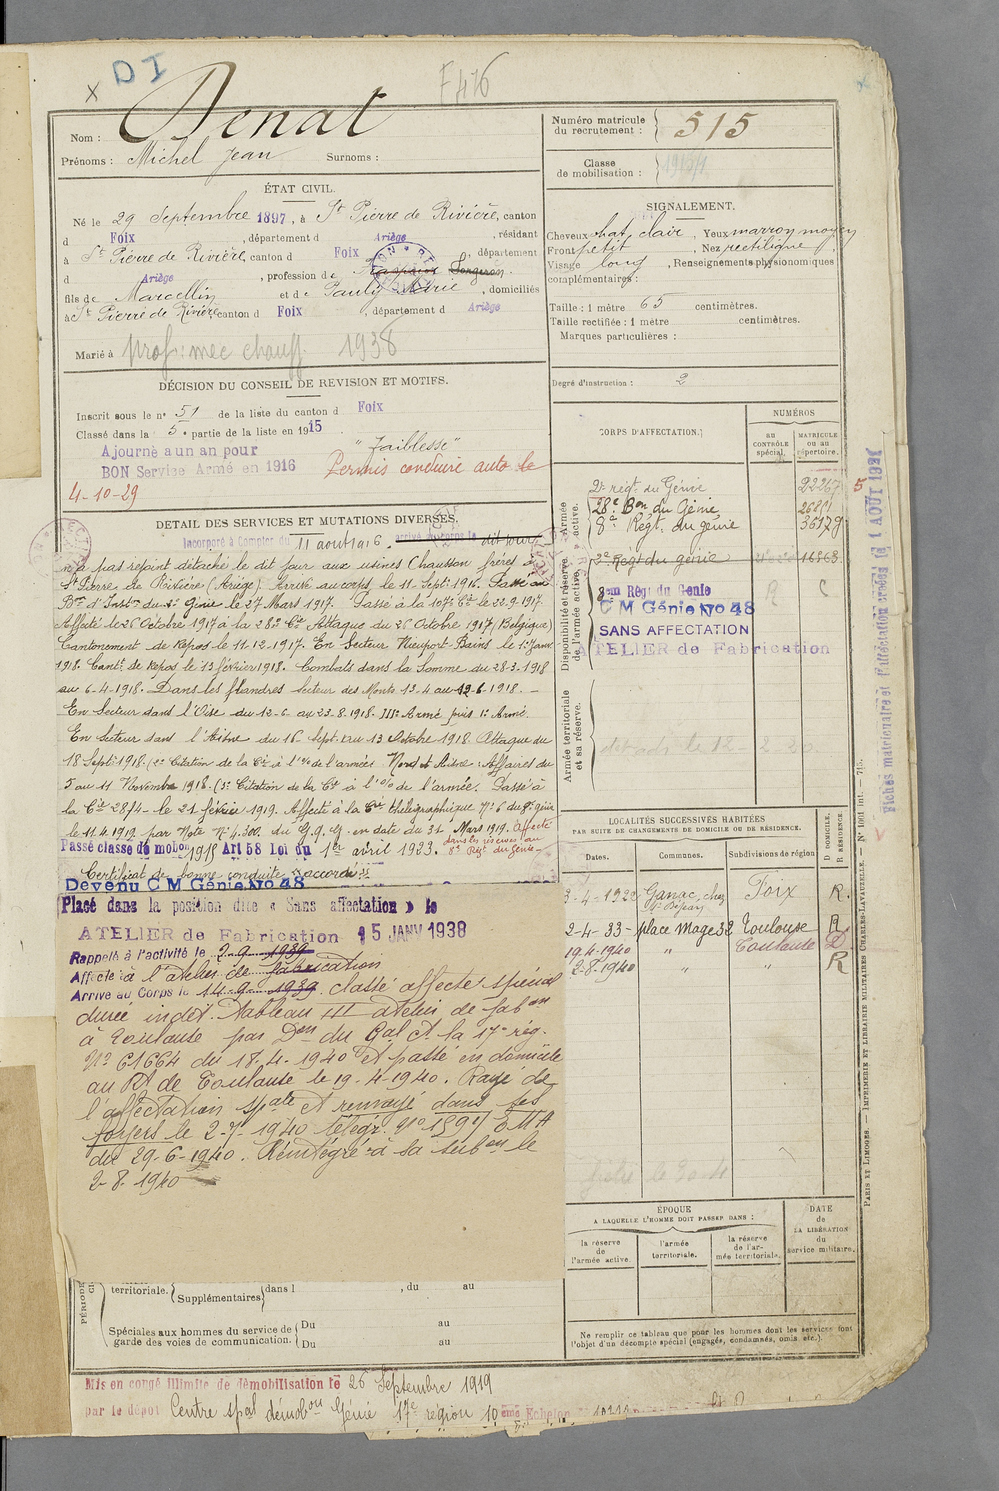 x DI
F 476
Nom : Denat
Prénoms : Michel Jean Surnoms :
Numéro matricule du recrutement : 515
Classe de mobilisation :
ÉTAT CIVIL.
Né le 29 Septembre 1897, à St Pierre de Rivière, canton
d Foix, département d Ariège, résidant
à St Pierre de Rivière, canton d Foix, département
d Ariège, profession de forgeron
fils de Marcellin et de Pauly Marie, domiciliés
à St Pierre de Rivière, canton d Foix, département d Ariège
Marié à
prof: mec chauff. 1938
SIGNALEMENT.
Cheveux chat. clair, Yeux marron moyen
Front petit, Nez rectiligne
Visage long, Renseignements physionomiques
complémentaires :
Taille : 1 mètre 65 centimètres.
Taille rectifiée : 1 mètre centimètres.
Marques particulières :
Degré d'instruction : 2
DÉCISION DU CONSEIL DE REVISION ET MOTIFS.
Inscrit sous le n° 51 de la liste du canton d Foix
Classé dans la 5e partie de la liste en 1915
Ajourné a un an pour "Faiblesse"
BON Service Armé en 1916 Permis conduire auto le
4-10-29
DETAIL DES SERVICES ET MUTATIONS DIVERSES.
Incorporé à Compter du 11 août 1916, arrivé au corps le dit jour
n'a pas rejoint détaché le dit jour aux usines Chausson frères à
St Pierre de Rivière (Ariège). Arrivé au corps le 11 Septt 1916. Passé au
Bon d'Inston du 2e Génie le 27 Mars 1917. Passé à la 107e Cie le 22.9.1917.
Affecté le 26 Octobre 1917 à la 28/4 Cie Attaque du 26 Octobre 1917 (Belgique)
Cantonement de Repos le 11.12.1917. En Secteur Nieuport-Bains le 1er Janv
1918. Cantt de Repos le 13 février 1918. Combats dans la Somme du 28-3-1918
au 6-4-1918. Dans les flandres Secteur des Monts 13-4 au 12-6-1918.
En Secteur dans l'Oise du 12-6 au 23.8.1918. IIIe Armé puis 1e Armé.
En Secteur dans l'Aisne du 16 Sept. au 13 Octobre 1918. Attaque du
18 Septt 1918. (2e Citation de la Cie à l'% de l'armée. Nord et Aisne : Affaires du
5 au 11 Novembre 1918. (3e Citation de la Cie à l'% de l'armée. Passé à
la Cie 28/4 le 21 février 1919. Affecté à la Cie thélégraphique No 6 du 8e génie
le 11.4.1919 par Note No 4.300. du G.Q.G. en date du 31 Mars 1919. Affecté
dans les réserves au
8e Régt du Génie
Passé classe de mobon 1915 Art 58 Loi du 1er avril 1923.
Certificat de bonne conduite "accordé"
Devenu C M Génie No 48
Placé dans la position dite « Sans affectation » le
ATELIER de Fabrication 15 JANV 1938
Rappelé à l'activité le 2-9-1939
Affecté à l'atelier de fabrication
Arrivé au Corps le 14-9-1939. Classé affecté spécial
durée indét. Tableau III atelier de fabon
à Toulouse par Don du Gal Ct la 17e rég.
No 61664 du 18.4.1940 et passé en domicile
au Rt de Toulouse le 19-4-1940. Rayé de
l'affectation spale et renvoyé dans ses
foyers le 2-7-1940 télégr. No 1591/ EMA
du 29-6-1940. Réintégré à sa subon le
2-8-1940
CORPS D'AFFECTATION.
NUMÉROS
au contrôle spécial.
matricule ou au répertoire.
Armée active.
2e régt du Génie 22267
28e Bon du Génie
8e Régt du génie 36179
Disponibilité et réserve de l'armée active.
2e Régt du génie 16863
8em Régt du Génie
C M Génie No 48
SANS AFFECTATION
ATELIER de Fabrication
Armée territoriale et sa réserve.
LOCALITÉS SUCCESSIVES HABITÉES
PAR SUITE DE CHANGEMENTS DE DOMICILE OU DE RÉSIDENCE.
Dates. Communes. Subdivisions de région. D. DOMICILE. R. RÉSIDENCE.
3-4-1922 Ganac, chez Foix R.
2-4-33 place Mage 32 Toulouse R
19.4.1940 " Toulouse D
2-8-1940 " " R
ÉPOQUE
A LAQUELLE L'HOMME DOIT PASSER DANS :
la réserve de l'armée active.
l'armée territoriale.
la réserve de l'armée territoriale.
DATE de LA LIBÉRATION du service militaire.
Ne remplir ce tableau que pour les hommes dont les services font
l'objet d'un décompte spécial (engagés, condamnés, omis, etc.).
territoriale. Supplémentaires dans l , du au
Spéciales aux hommes du service de garde des voies de communication. Du au
Du au
Mis en congé illimité de démobilisation le 26 Septembre 1919
par le dépôt Centre spal démobon Génie 17e région 10eme Echelon
Fiches matriculaire et d'affectation créées le 1 AOUT 1921
PARIS ET LIMOGES. — IMPRIMERIE ET LIBRAIRIE MILITAIRES CHARLES-LAVAUZELLE.